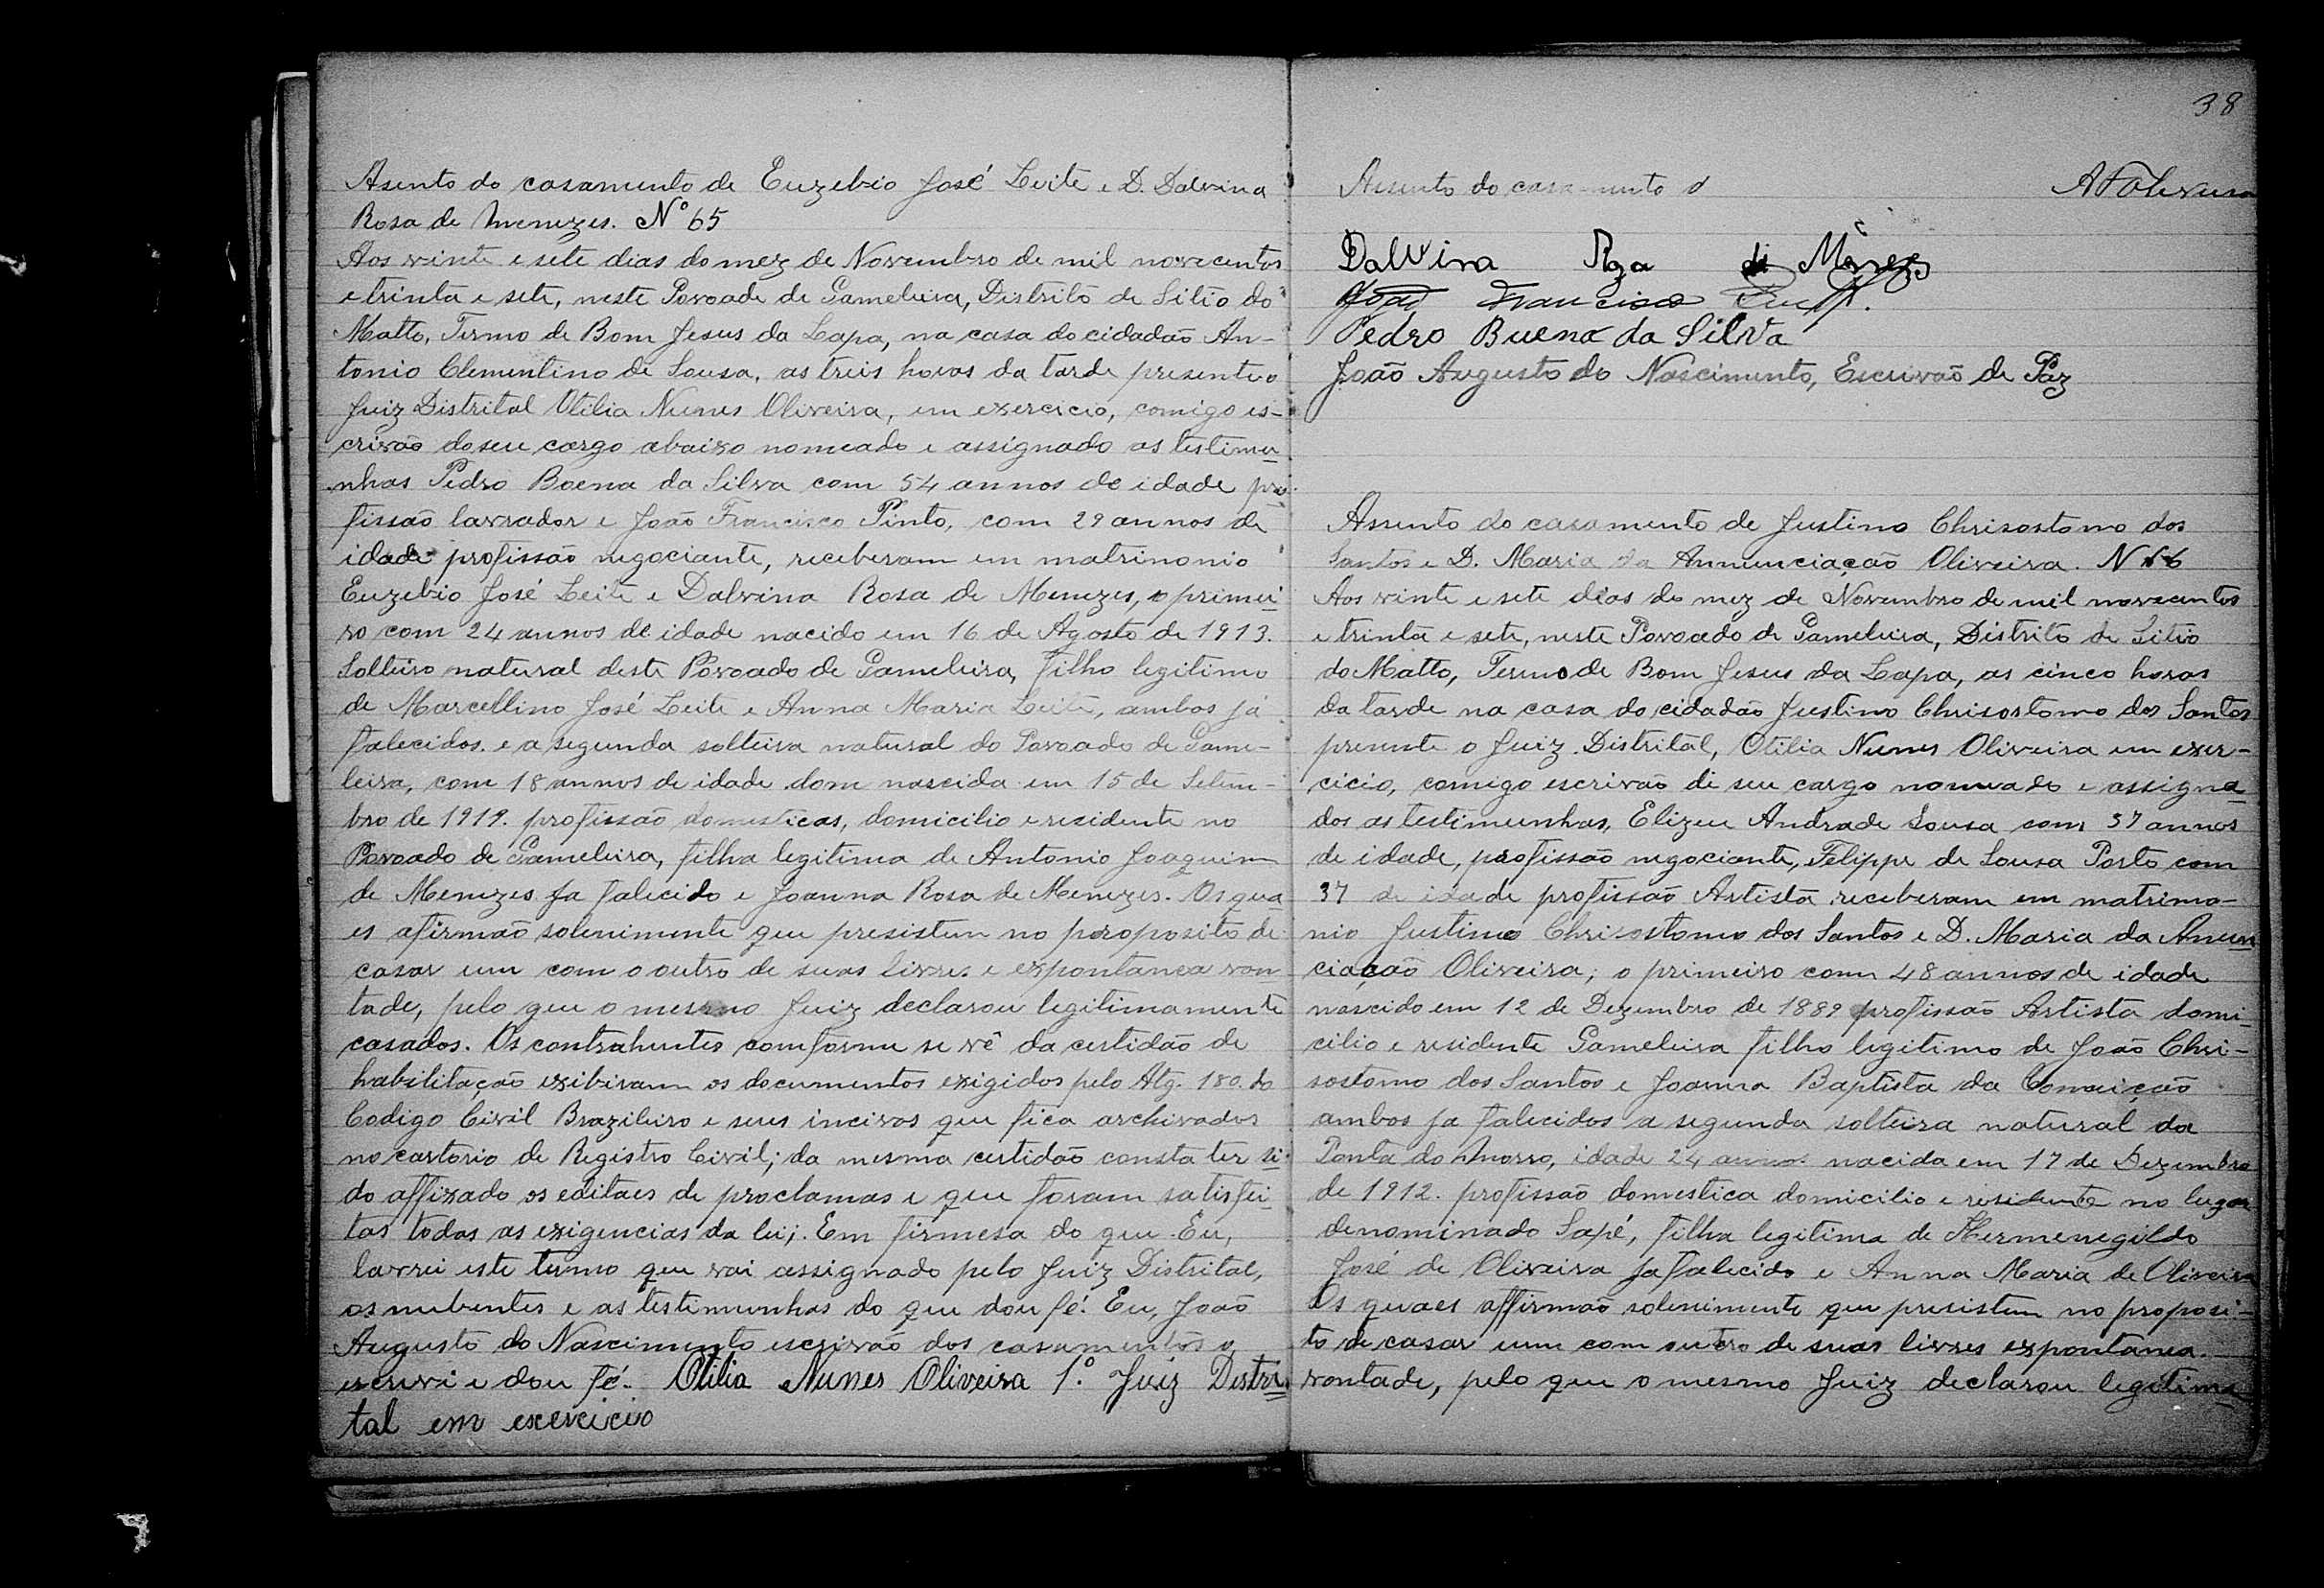 Asento do casamento de Euzebio José Leite e D. Dalvina
Rosa de Menezes. Nº 65
Aos vinte e sete dias do mez de Novembro de mil novecentos
e trinta e sete, neste Povoade de Gameleira, Distrito de Sitio do
Matto, Termo de Bom Jesus da Lapa, na casa do cidadão An-
tonio Clementino de Sousa, as treis horas da tarde presente o
Juiz Distrital Otilia Nunes Oliveira, em exercicio, comigo es-
crivão do seu cargo abaixo nomeado e assignado as testimu
nhas Pedro Boena da Silva com 54 annos de idade pro
fissão lavrador e João Francisco Pinto, com 29 annos de
idade profissão negociante, receberam em matrimonio
Euzebio José Leite e Dalvina Rosa de Menezes, o primei
ro com 24 annos de idade nacido em 16 de Agosto de 1913.
Solteiro natural deste Povoado de Gameleira, filho legitimo
de Marcellino José Leite e Anna Maria Leite, ambos já
falecidos. e a segunda solteira natural do Povoado de Game-
leira, com 18 annos de idade dom nascida em 15 de Setem-
bro de 1919. profissão domesticas, domicilio e residente no
Povoado de Gameleira, filha legitima de Antonio Joaquim
de Menezes ja falecido e Joanna Rosa de Menezes. Os qua
es afirmão solenimente que presistem no proposito de
casar um com o outro de suas livres e expontanea von
tade, pelo que o mesmo Juiz declarou legitimamente
casados. Os contrahentes comforme se vê da certidão de
habilitação exibiram os documentos exigidos pelo Atg. 180. do
Codigo Civil Brazileiro e seus incivos que fica archivados
no cartorio de Registro Civil; da mesma certidão consta ter si
do affixado os editaes de proclamas e que foram satisfei
tas todas as exigencias da lei;. Em firmesa do que Eu,
lavrei este termo que vai assignado pelo Juiz Distrital,
os nubentes e as testimunhas do que dou fé. Eu, João
Augusto do Nascimento escrivão dos casamentos o
escrevi e dou fé. Otilia Nunes Oliveira 1º. Juiz Distri
tal em exercicio
38
Assento do casamento d
Dalvina Roza di Menezes
João Francisco
Pedro Buena da Silva
João Augusto do Nascimento, Escrivão de Paz
Assento do casamento de Justino Chrisostomo dos
Santos e D. Maria da Annunciação Oliveira. N 66
Aos vinte e sete dias do mez de Novembro de mil novecentos
e trinta e sete, neste Povoado de Gameleira, Distrito de Sitio
do Matto, Termo de Bom Jesus da Lapa, as cinco horas
da tarde na casa do cidadão Justino Chrisostomo dos Santos
presente o Juiz Distrital, Otilia Nunes Oliveira em exer-
cicio, comigo escrivão di seu cargo nomeado e assigna
dos as testimunhas, Elizeu Andrade Sousa com 37 annos
de idade, profissão negociante, Felippe de Sousa Porto com
37 de idade profissão Artista receberam em matrimo-
nio Justino Chrisostomo dos Santos e D. Maria da Anun
ciação Oliveira; o primeiro com 48 annos de idade
nascido em 12 de Dezembro de 1889 profissão Artista domi-
cilio e residente Gameleira filho legitimo de João Chri-
sostomo dos Santos e Joanna Baptista da
ambos ja falecidos a segunda solteira natural da
Ponta do Morro, idade 24 annos nacida em 17 de Dezembro
de 1912. profissão domestica domicilio e residente no lugar
denominado Sapé, filha legitima de Hermenegildo
José de Oliveira ja falecido e Anna Maria de Oliveira
Os quaes affirmão solenimente que presistem no proposi-
to de casar um com outro de suas livres expontanea
vontade, pelo que o mesmo Juiz declarou legitima